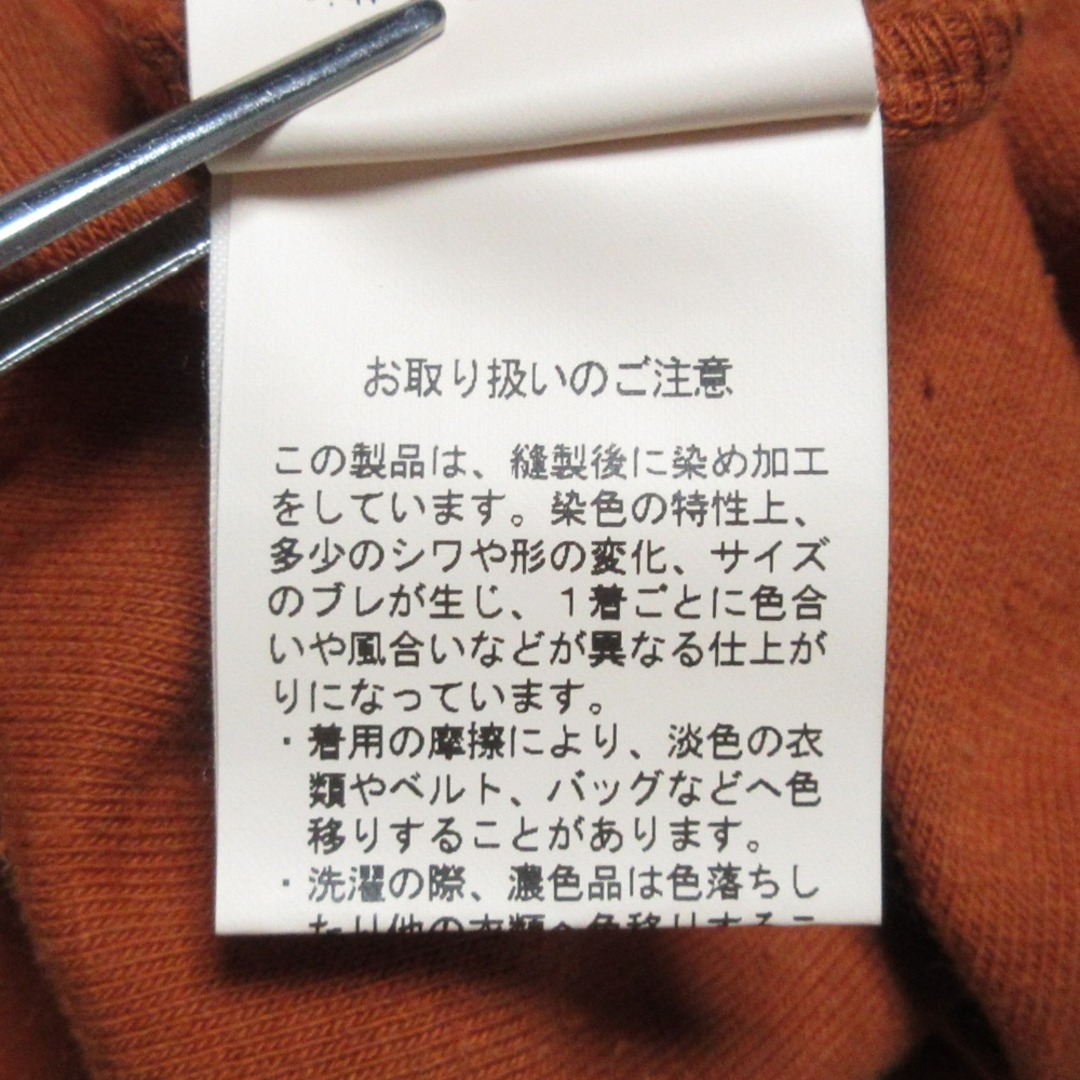 お取り扱いのご注意
この製品は、縫製後に染め加工
をしています。染色の特性上、
多少のシワや形の変化、サイズ
のブレが生じ、１着ごとに色合
いや風合いなどが異なる仕上が
りになっています。
・着用の摩擦により、淡色の衣
類やベルト、バッグなどへ色
移りすることがあります。
・洗濯の際、濃色品は色落ちし
たり他の衣類へ色移りするこ